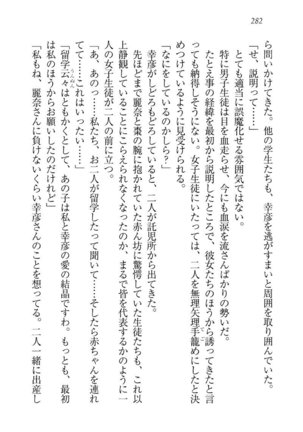 282
ら問いかけてきた。他の学生たちも、幸彦を逃がすまいと周囲を取り囲んでいた。
「せ、説明って……」
とても適当に誤魔化せる雰囲気ではない。
特に男子生徒は目を血走らせ、今にも血涙を流さんばかりの勢いだ。
たとえ事の経緯を最初から説明したところで、彼女たちのほうから誘ってきたと言
って納得しそうにない。女子生徒にいたっては、二人を無理矢理手籠めにしたと決
めつけているように見受けられる。
「なにをしているのかしら？」
幸彦がしどろもどろしていると、二人が託児所から出てきた。
先ほどまで麗奈と棗の腕に抱かれていた赤ん坊に驚愕していた生徒たちも、これ以
上静観していることにこらえられなくなったのか、まるで皆を代表するかのように一
人の女子生徒が二人の前に立つ。
「あ、あの……私たち、お二人が留学したって聞いて……そしたら赤ちゃんを連れ
てて……これはいったい……」
「留学云々はともかくとして、あの子は私と幸彦の愛の結晶ですわ。もっとも、最初
うんぬん
は私のほうからお願いしたのだけれど」
「私もね、麗奈さんに負けないくらい幸彦さんのことを想ってる。二人一緒に出産し